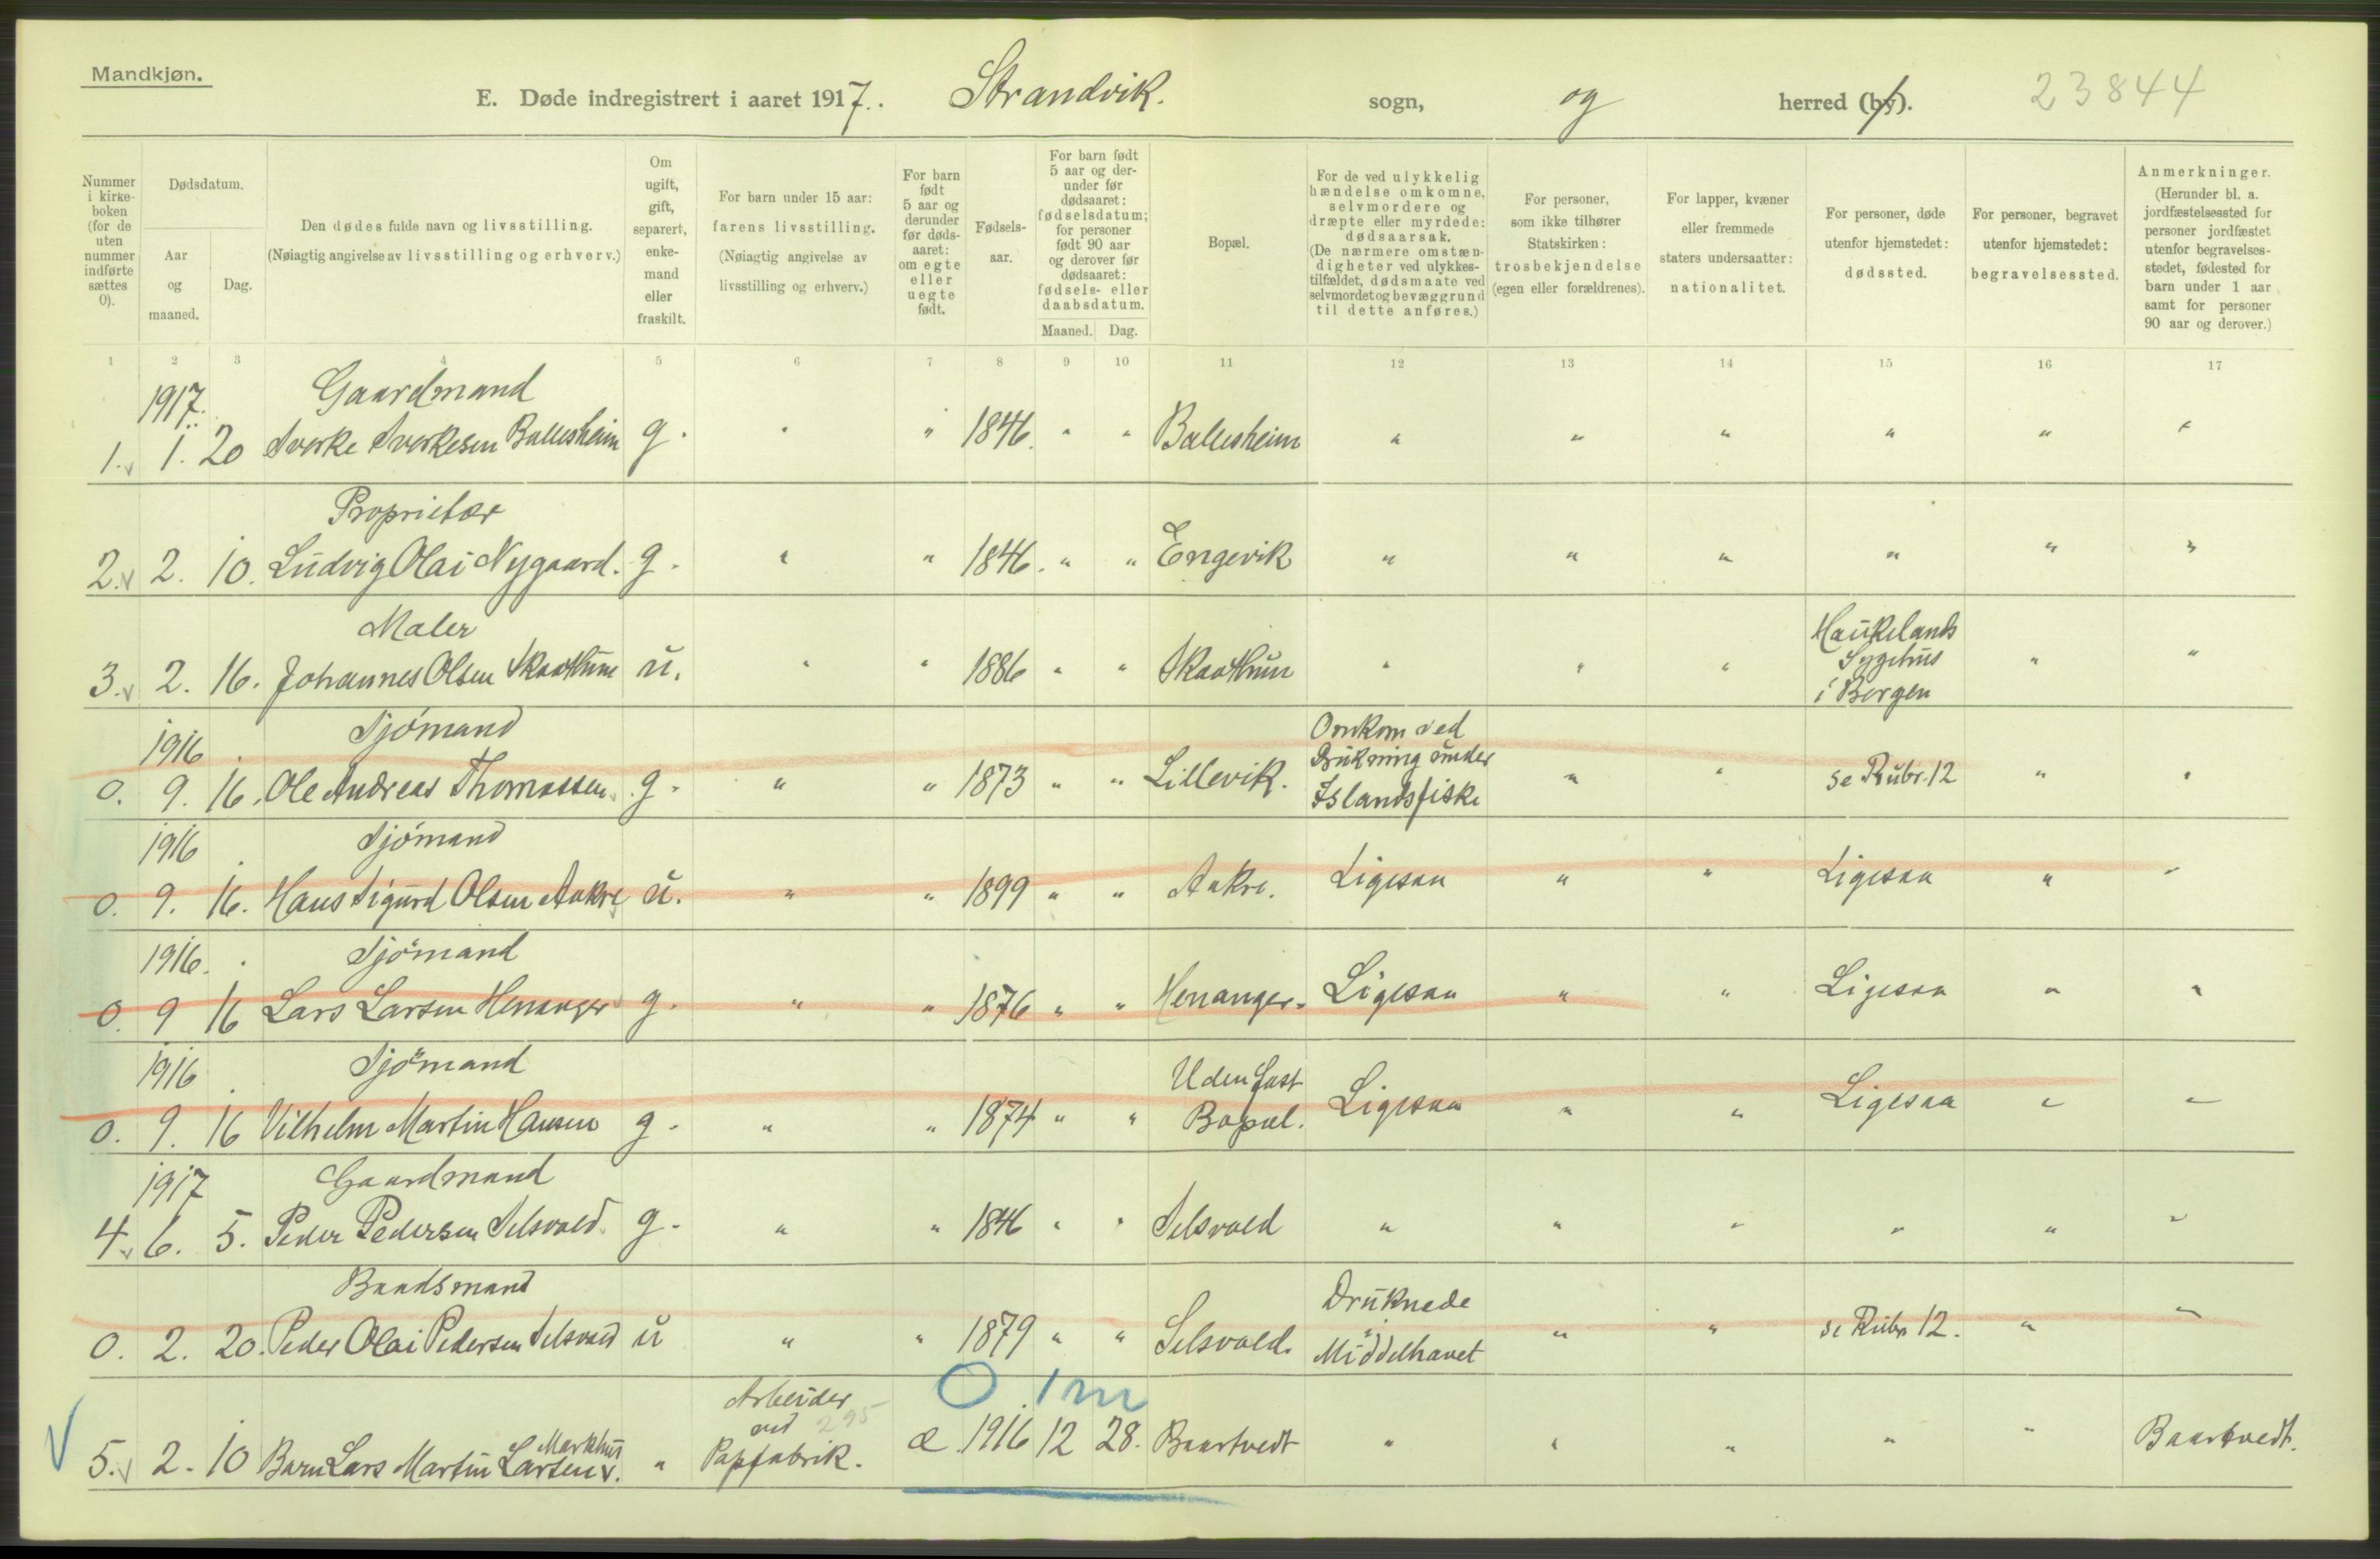 Mandkjøn.
E. Døde indregistrert i aaret 1917. Strandvik. sogn, og herred (by). 23844
Nummer i kirke-boken (for de uten nummer indførte sættes 0).
Dødsdatum.
Aar og maaned.
Dag.
Den dødes fulde navn og livsstilling.
(Nøiagtig angivelse av livsstilling og erhverv.)
Om ugift, gift, separert, enke-mand eller fraskilt.
For barn under 15 aar:
farens livsstilling.
(Nøiagtig angivelse av livsstilling og erhverv.)
For barn født 5 aar og derunder før døds-aaret: om egte eller uegte født.
Fødsels-aar.
For barn født 5 aar og der-under før dødsaaret: fødselsdatum; for personer født 90 aar og derover før dødsaaret: fødsels- eller daabsdatum.
Maaned. Dag.
Bopæl.
For de ved ulykkelig hændelse omkomne, selvmordere og dræpte eller myrdede: dødsaarsak. (De nærmere omstæn-digheter ved ulykkes-tilfældet, dødsmaate ved selvmordet og bevæggrund til dette anføres.)
For personer, som ikke tilhører Statskirken: trosbekjendelse (egen eller forældrenes).
For lapper, kvæner eller fremmede staters undersaatter: nationalitet.
For personer, døde utenfor hjemstedet: dødssted.
For personer, begravet utenfor hjemstedet: begravelsessted.
Anmerkninger.
(Herunder bl. a. jordfæstelsessted for personer jordfæstet utenfor begravelses-stedet, fødested for barn under 1 aar samt for personer 90 aar og derover.)
1 2 3 4 5 6 7 8 9 10 11 12 13 14 15 16 17
1917. Gaardmand
1. v 1. 20 Sverke Sverkesen Ballesheim g. " " 1846. " " Ballesheim " " " " " "
Proprietær
2. v 2. 10. Ludvig Olai Nygaard. g. " " 1846. " " Engevik " " " " " "
Maler Haukelands
3. v 2. 16. Johannes Olsen Skaathun u. " " 1886 " " Skaathun " " " Sygehus " "
i Bergen
1916 Sjømand Omkom ved
0. 9. 16. Ole Andreas Thomassen g. " " 1873 " " Lillevik. Drukning under " " se Rubr. 12 " "
Islandsfiske
1916 Sjømand
0. 9. 16. Hans Sigurd Olsen Aakre u. " " 1899 " " Aakre. Ligesaa " " Ligesaa " "
1916. Sjømand
0. 9 16 Lars Larsen Henanger g. " " 1876 " " Henanger. Ligesaa " " Ligesaa " "
1916 Sjømand Uden fast
0. 9. 16 Vilhelm Martin Hansen g. " " 1874 " " Bopæl. Ligesaa " " Ligesaa " "
1917 Gaardmand
4. v 6. 5. Peder Pedersen Selsvold g. " " 1846 " " Selsvold " " " " " "
Baadsmand Druknede
0. 2. 20. Peder Olai Pedersen Selsvold u " " 1879 " " Selsvold. i " " se Rubr 12. " "
Middelhavet
0 1 m
Arbeider
ved 295
V 5. v 2. 10 Barn Lars Martin Larsen Markhus v. " Papfabrik. æ. 1916 12 28. Baartvedt " " " " " Baartvedt.